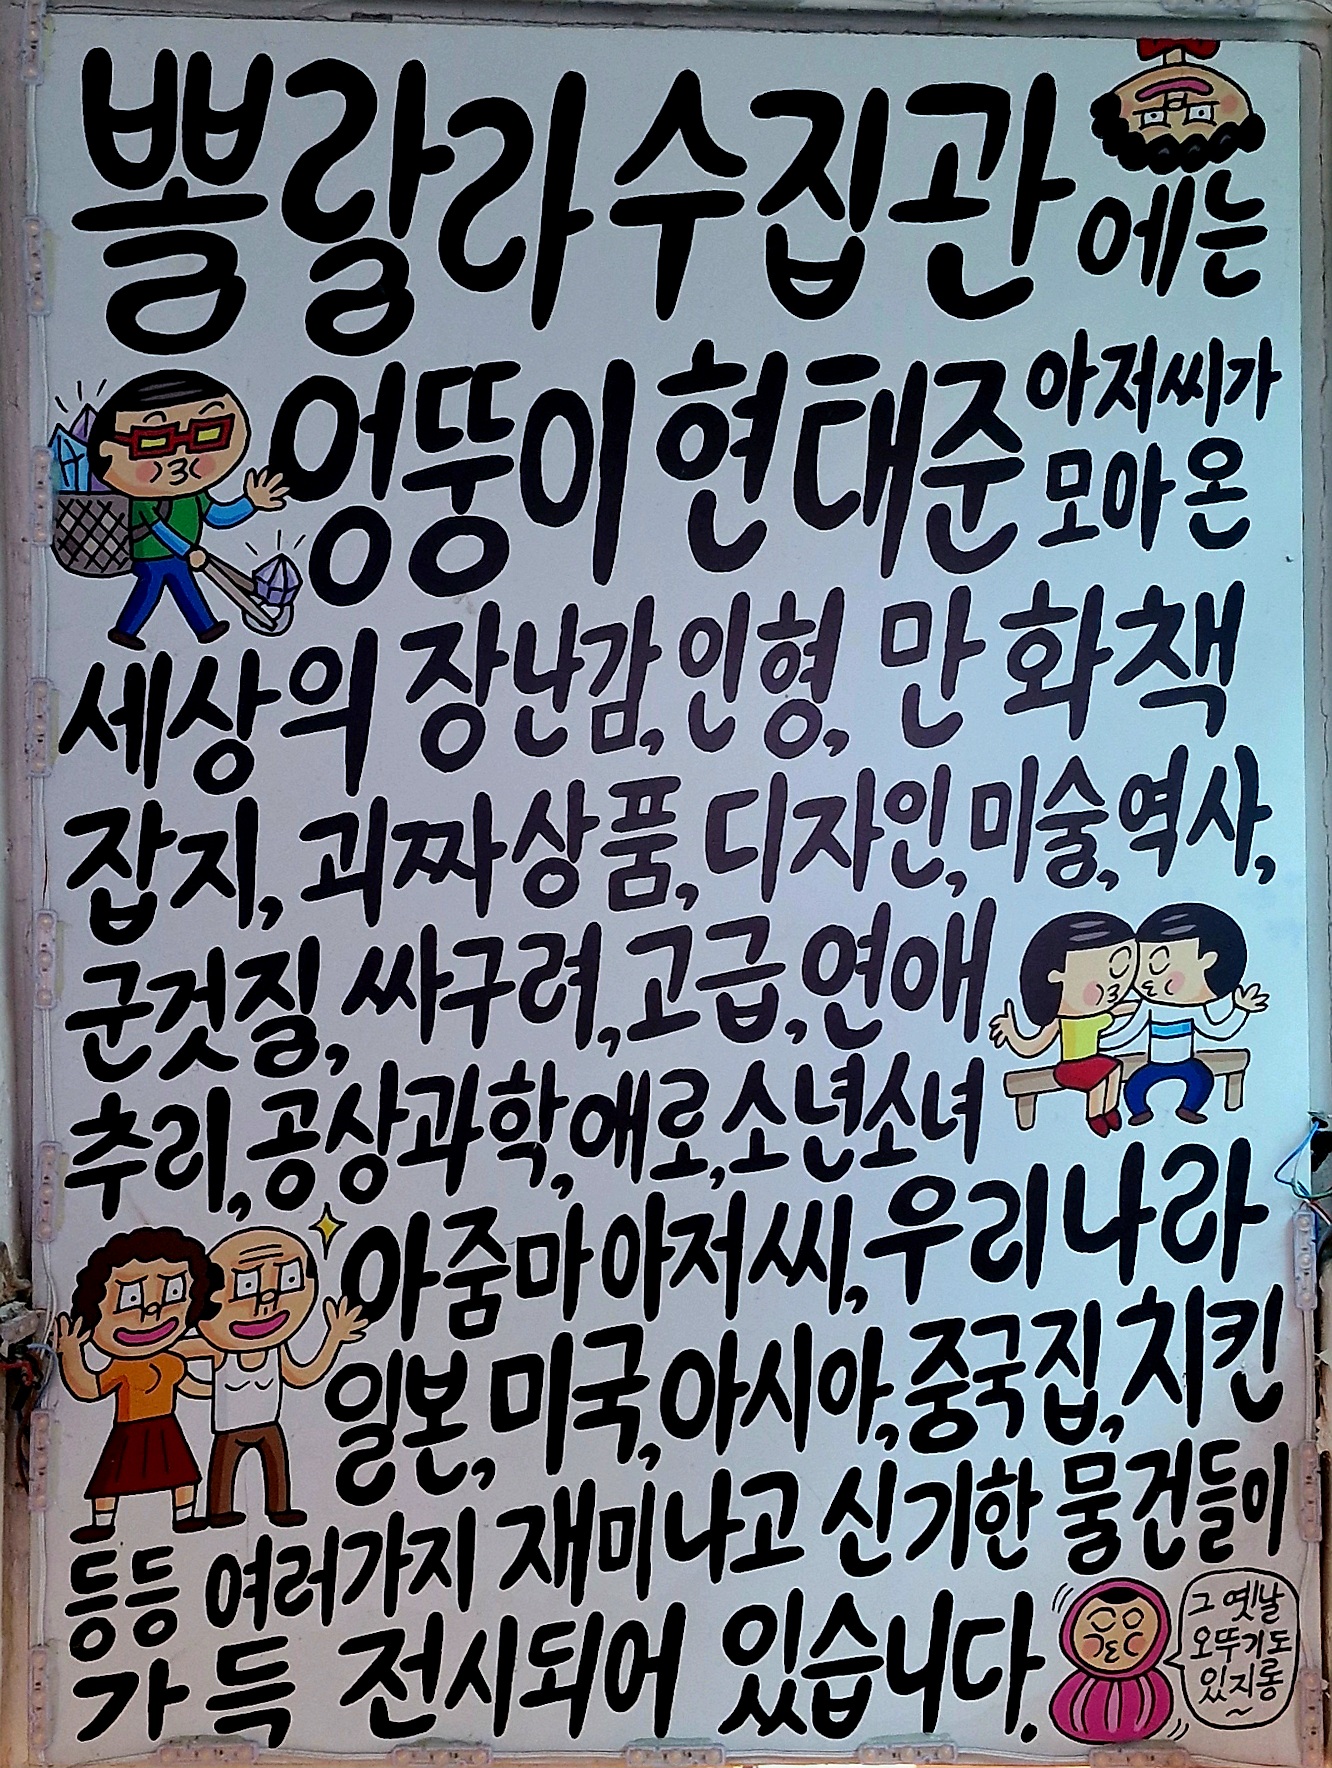 뽈랄라 수집관에는
엉뚱이 현태준 아저씨가
모아 온
세상의 장난감, 인형, 만화책
잡지, 괴짜상품, 디자인, 미술, 역사,
군것질, 싸구려, 고급, 연애
추리, 공상과학, 애로, 소년소녀
아줌마 아저씨, 우리나라
일본, 미국, 아시아, 중국집, 치킨
등등 여러가지 재미나고 신기한 물건들이
가득 전시되어 있습니다.
그 옛날
오뚜기도
있지롱
~